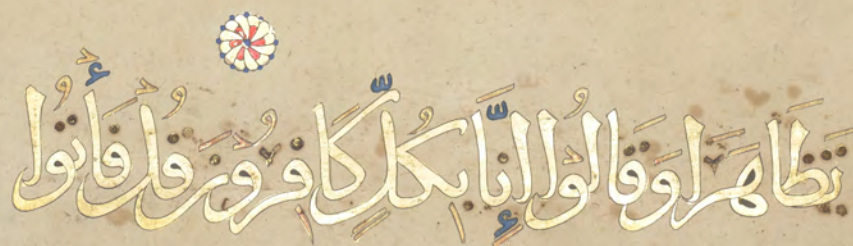 تَظَاهَرَا وَقَالُوْا إِنَّا بِكُلٍّ كَافِرُوْنَ قُلْ فَأْتُوا